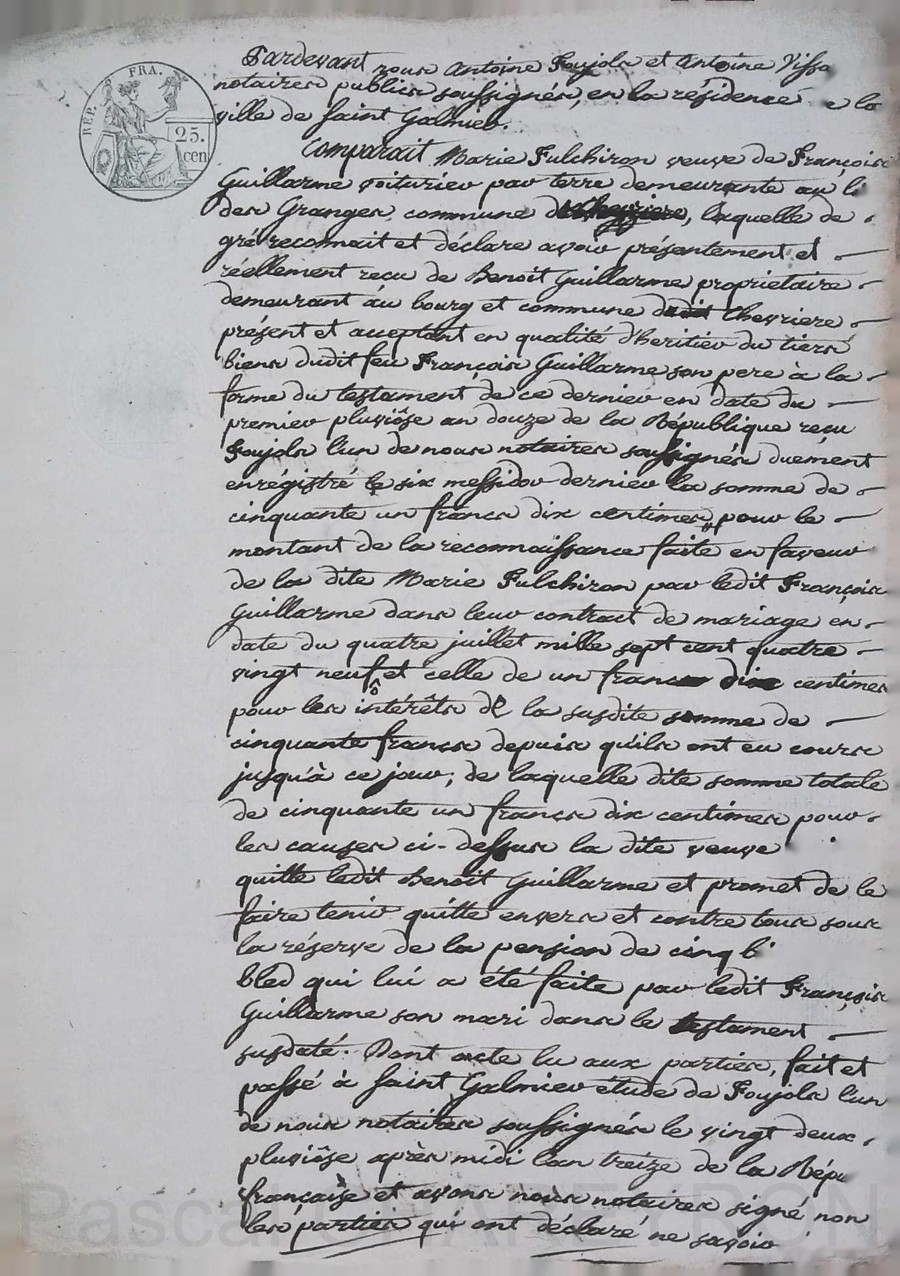 REP. FRA.
25.
cen
Pardevant nous Antoine Foujols et Antoine Vissa
notaires publics soussignés, en la résidence e la
ville de Saint Galmier.
Comparait Marie Fulchiron veuve de François
Guillarme voiturier par terre demeurante au li
des Granges, commune de Chevriere, laquelle de
gré reconnait et déclare avoir présentement et
réellement reçu de Benoit Guillarme proprietaire
demeurant au bourg et commune dudit Chevriere
présent et acceptant en qualité d'heritier du tiers
biens dudit feu François Guillarme son pere à la
forme du testament de ce dernier en date du
premier pluviôse an douze de la République reçu
Foujols l'un de nous notaires soussignés duement
enrégistré le six messidor dernier la somme de
cinquante un francs dix centimes, pour le
montant de la reconnaissance faite en faveur
de la dite Marie Fulchiron par ledit François
Guillarme dans leur contract de mariage en
date du quatre juillet mille sept cent quatre
vingt neuf, et celle de un franc dix centimes
pour les intérêts de la susdite somme de
cinquante francs depuis qu'ils ont eu cours
jusqu'à ce jour; de laquelle dite somme totale
de cinquante un francs dix centimes pour
les causes ci-dessus la dite veuve
quitte ledit Benoit Guillarme et promet de le
faire tenir quitte envers et contre tous sous
la réserve de la pension de cinq
bled qui lui a été faite par ledit François
Guillarme son mari dans le testament
susdaté. Dont acte lu aux parties, fait et
passé à Saint Galmier étude de Foujols l'un
de nous notaires soussignés le vingt deux
pluviôse après midi l'an treize de la Répu
française et avons nous notaires signé non
les parties qui ont déclaré ne savoir